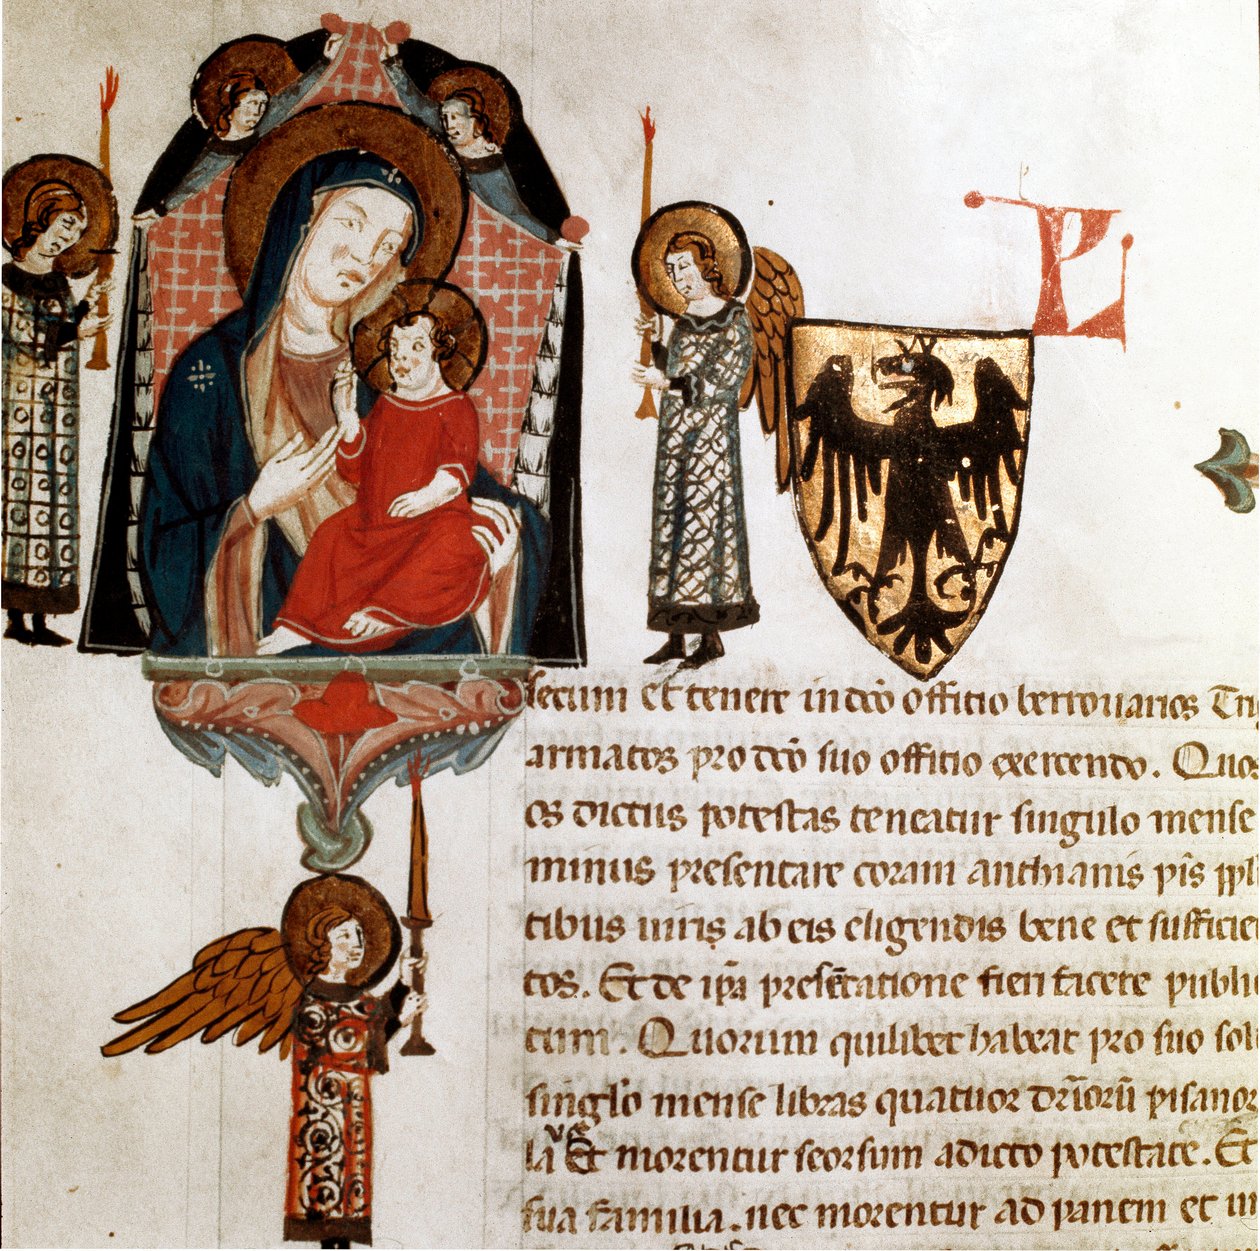 P
secum et tenere in dco officio berrouarios Tri
armatos pro dco suo officio exercendo. Quos
os dictus potestas teneatur singulo mense
minus presentare coram anthianis pis ppli
tibus uiris ab eis eligendis bene et sufficie
tos. Et de ipa presetatione fieri facere publi
cum. Quorum quilibet habeat pro suo sol
singlo mense libras quatuor drioru pisanor
Et morentur seorsum a dicto potestate. Et
sua familia. nec morentur ad panem et ui